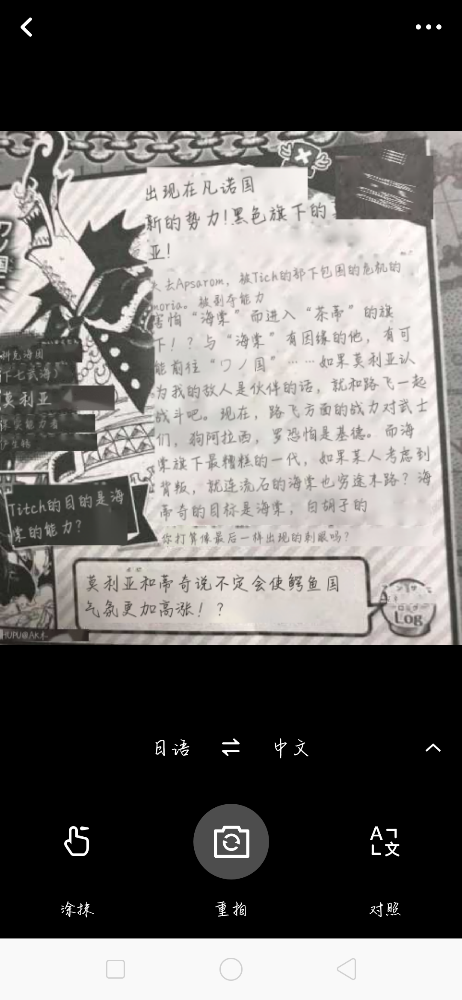 出现在凡诺国
新的势力!黑色旗下的
亚!
大去Apsarom，被Tich的部下包围的危机的
moria。被剥夺能力
害怕“海棠”而进入“茶蒂”的旗
下!？与“海棠”有因缘的他，有可
能前往“ワノ国”……如果莫利亚认
为我的敌人是伙伴的话，就和路飞一起
战斗吧。现在，路飞方面的战力对武士
们，狗阿拉西，罗恐怕是基德。而海
棠旗下最糟糕的一代，如果某人考虑到
背叛，就连流石的海棠也穷途末路？海
蒂奇的目标是海棠，白胡子的
你打算像最后一样出现的刺眼吗？
科克海国
十七武海
莫利亚
果实能力者
Titch的目的是海
棠的能力？
莫利亚和蒂奇说不定会使鳄鱼国
气氛更加高涨!？
Log
HUPU@AK木
日语
中文
涂抹
重拍
对照